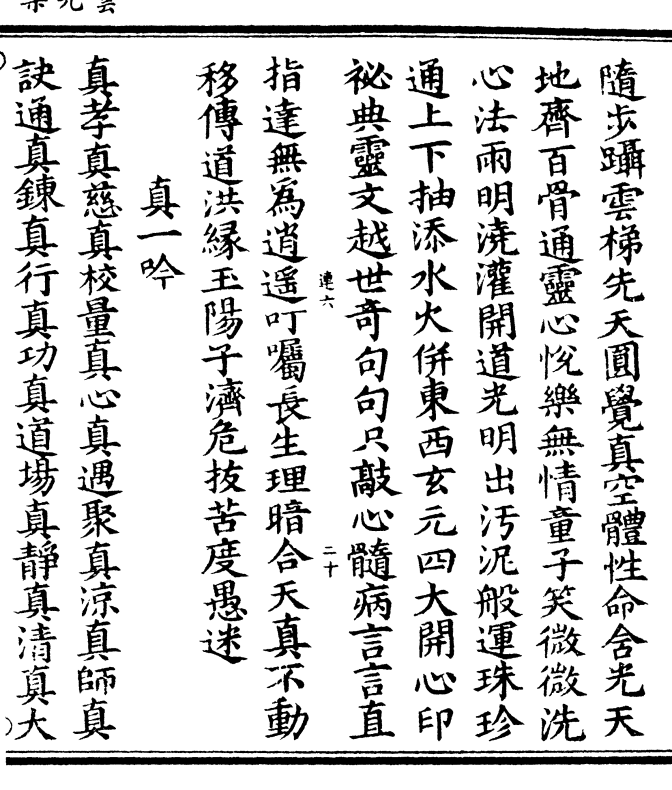 隨步躡雲梯先天圓覺真空體性命舍光天
地齊百骨通靈心悅樂無情童子笑微微洗
心法雨明澆灌開道光明出污泥般運珠珍
通上下抽添水火併東西玄元四大開心印
祕典靈文越世竒句句只敲心髓病言言直
連六
二十
指達無為逍遥叮囑長生理暗合天真不動
移傳道洪緣玉陽子濟危拔苦度愚迷
真一吟
真孝真慈真校量真心真遇聚真涼真師真
訣通真鍊真行真功真道場真靜真清真大